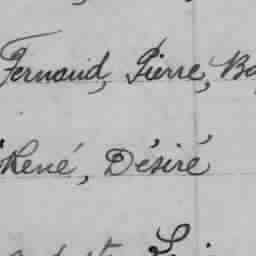 Fernand, Pierre, Ba
René, Désiré